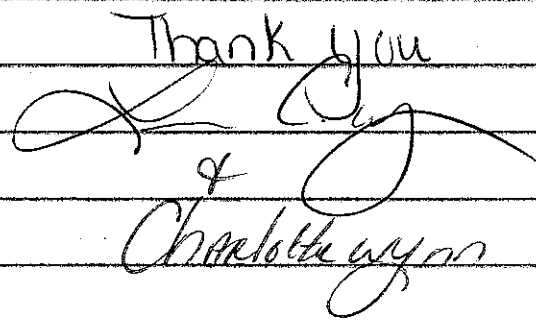 Thank you
&
Charlotte Wynn